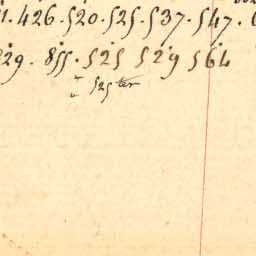 426. 520. 525. 537. 547.
29. 855. 525 529 564
525 ter